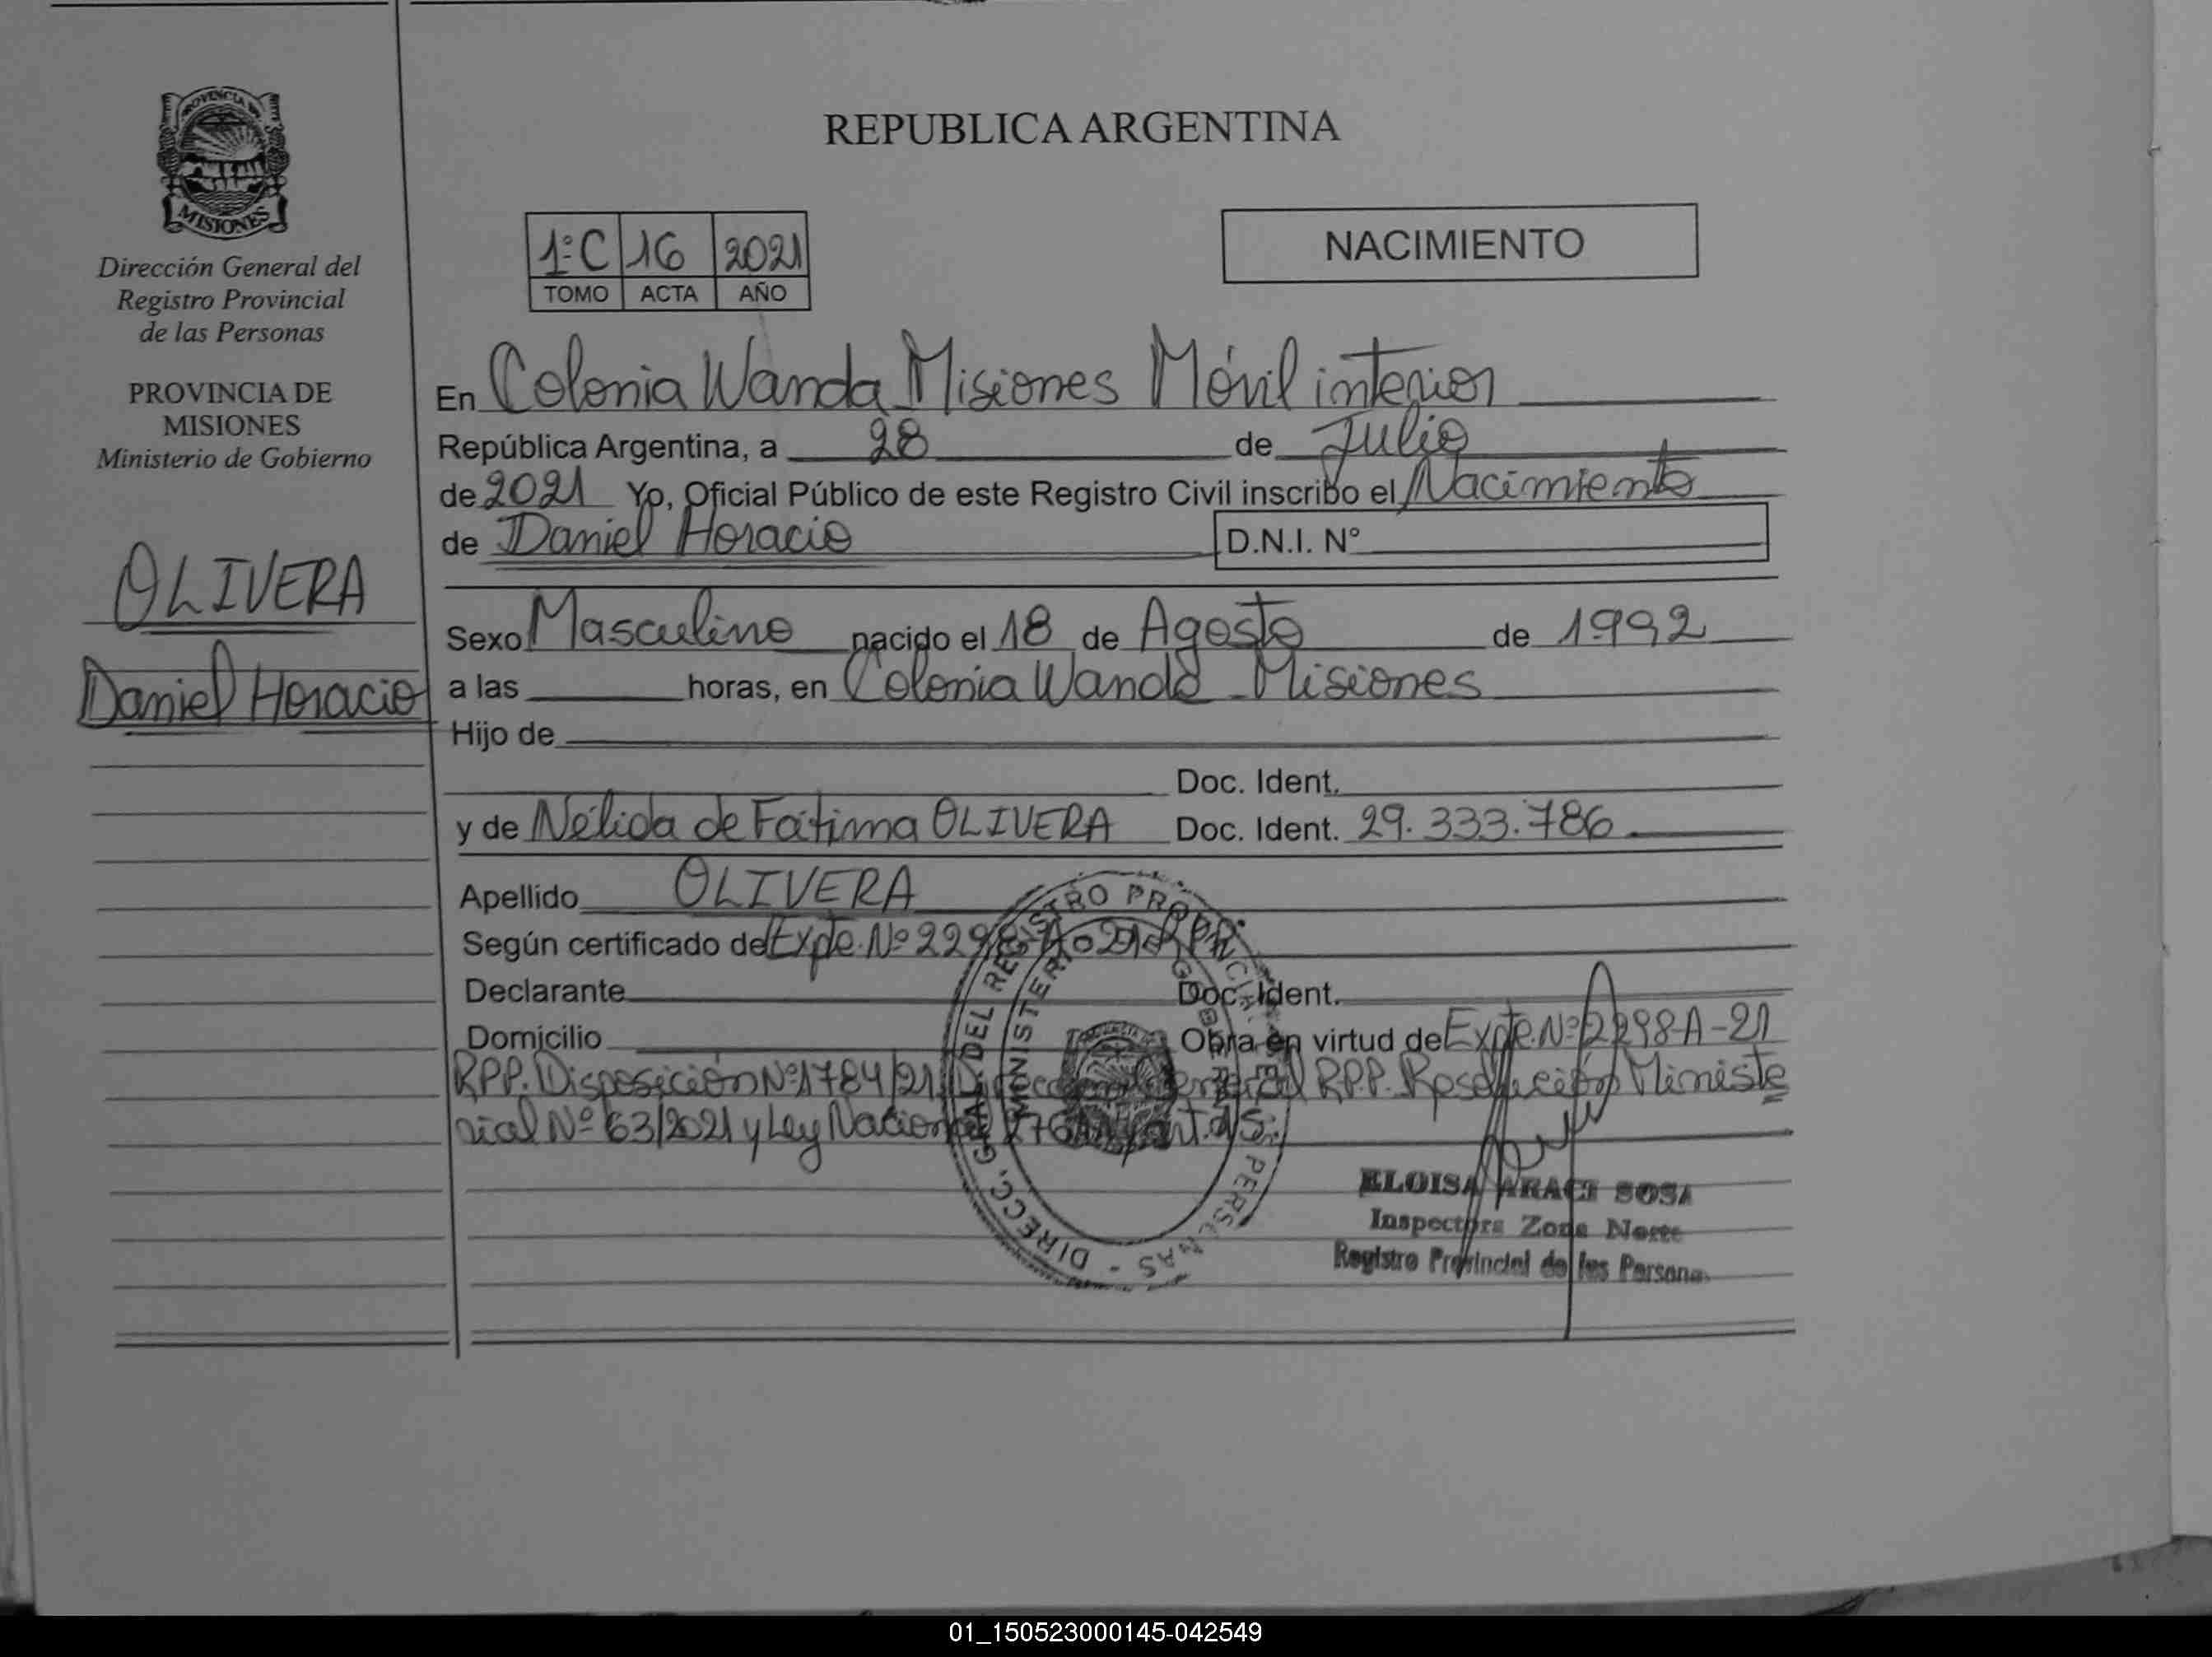 PROVINCIA DE
MISIONES
Dirección General del
Registro Provincial
de las Personas
PROVINCIA DE
MISIONES
Ministerio de Gobierno
OLIVERA
Daniel Horacio
REPUBLICA ARGENTINA
1:C 16 2021
TOMO ACTA AÑO
NACIMIENTO
En Colonia Wanda Misiones Móvil interior
República Argentina, a 28 de Julio
de 2021 Yo, Oficial Público de este Registro Civil inscribo el Nacimiento
de Daniel Horacio D.N.I. N°
Sexo Masculino nacido el 18 de Agosto de 1992
a las horas, en Colonia Wanda Misiones
Hijo de
Doc. Ident.
y de Nélida de Fátima OLIVERA Doc. Ident. 29.333.786
Apellido OLIVERA
Según certificado de Expte. Nº 2298-A-21-RPP
Declarante Doc. Ident.
Domicilio Obra en virtud de Expte. Nº 2298-A-21
RPP. Disposición Nº 1784/21 Dirección General RPP. Resolución Ministe
rial Nº 63/2021 y Ley Nacional
DIRECC. GRAL. DEL REGISTRO PROVINCIAL PERSONAS
MINISTERIO GOBIERNO
ELOISA ARACI SOSA
Inspectora Zona Norte
Registro Provincial de las Personas
01_150523000145-042549